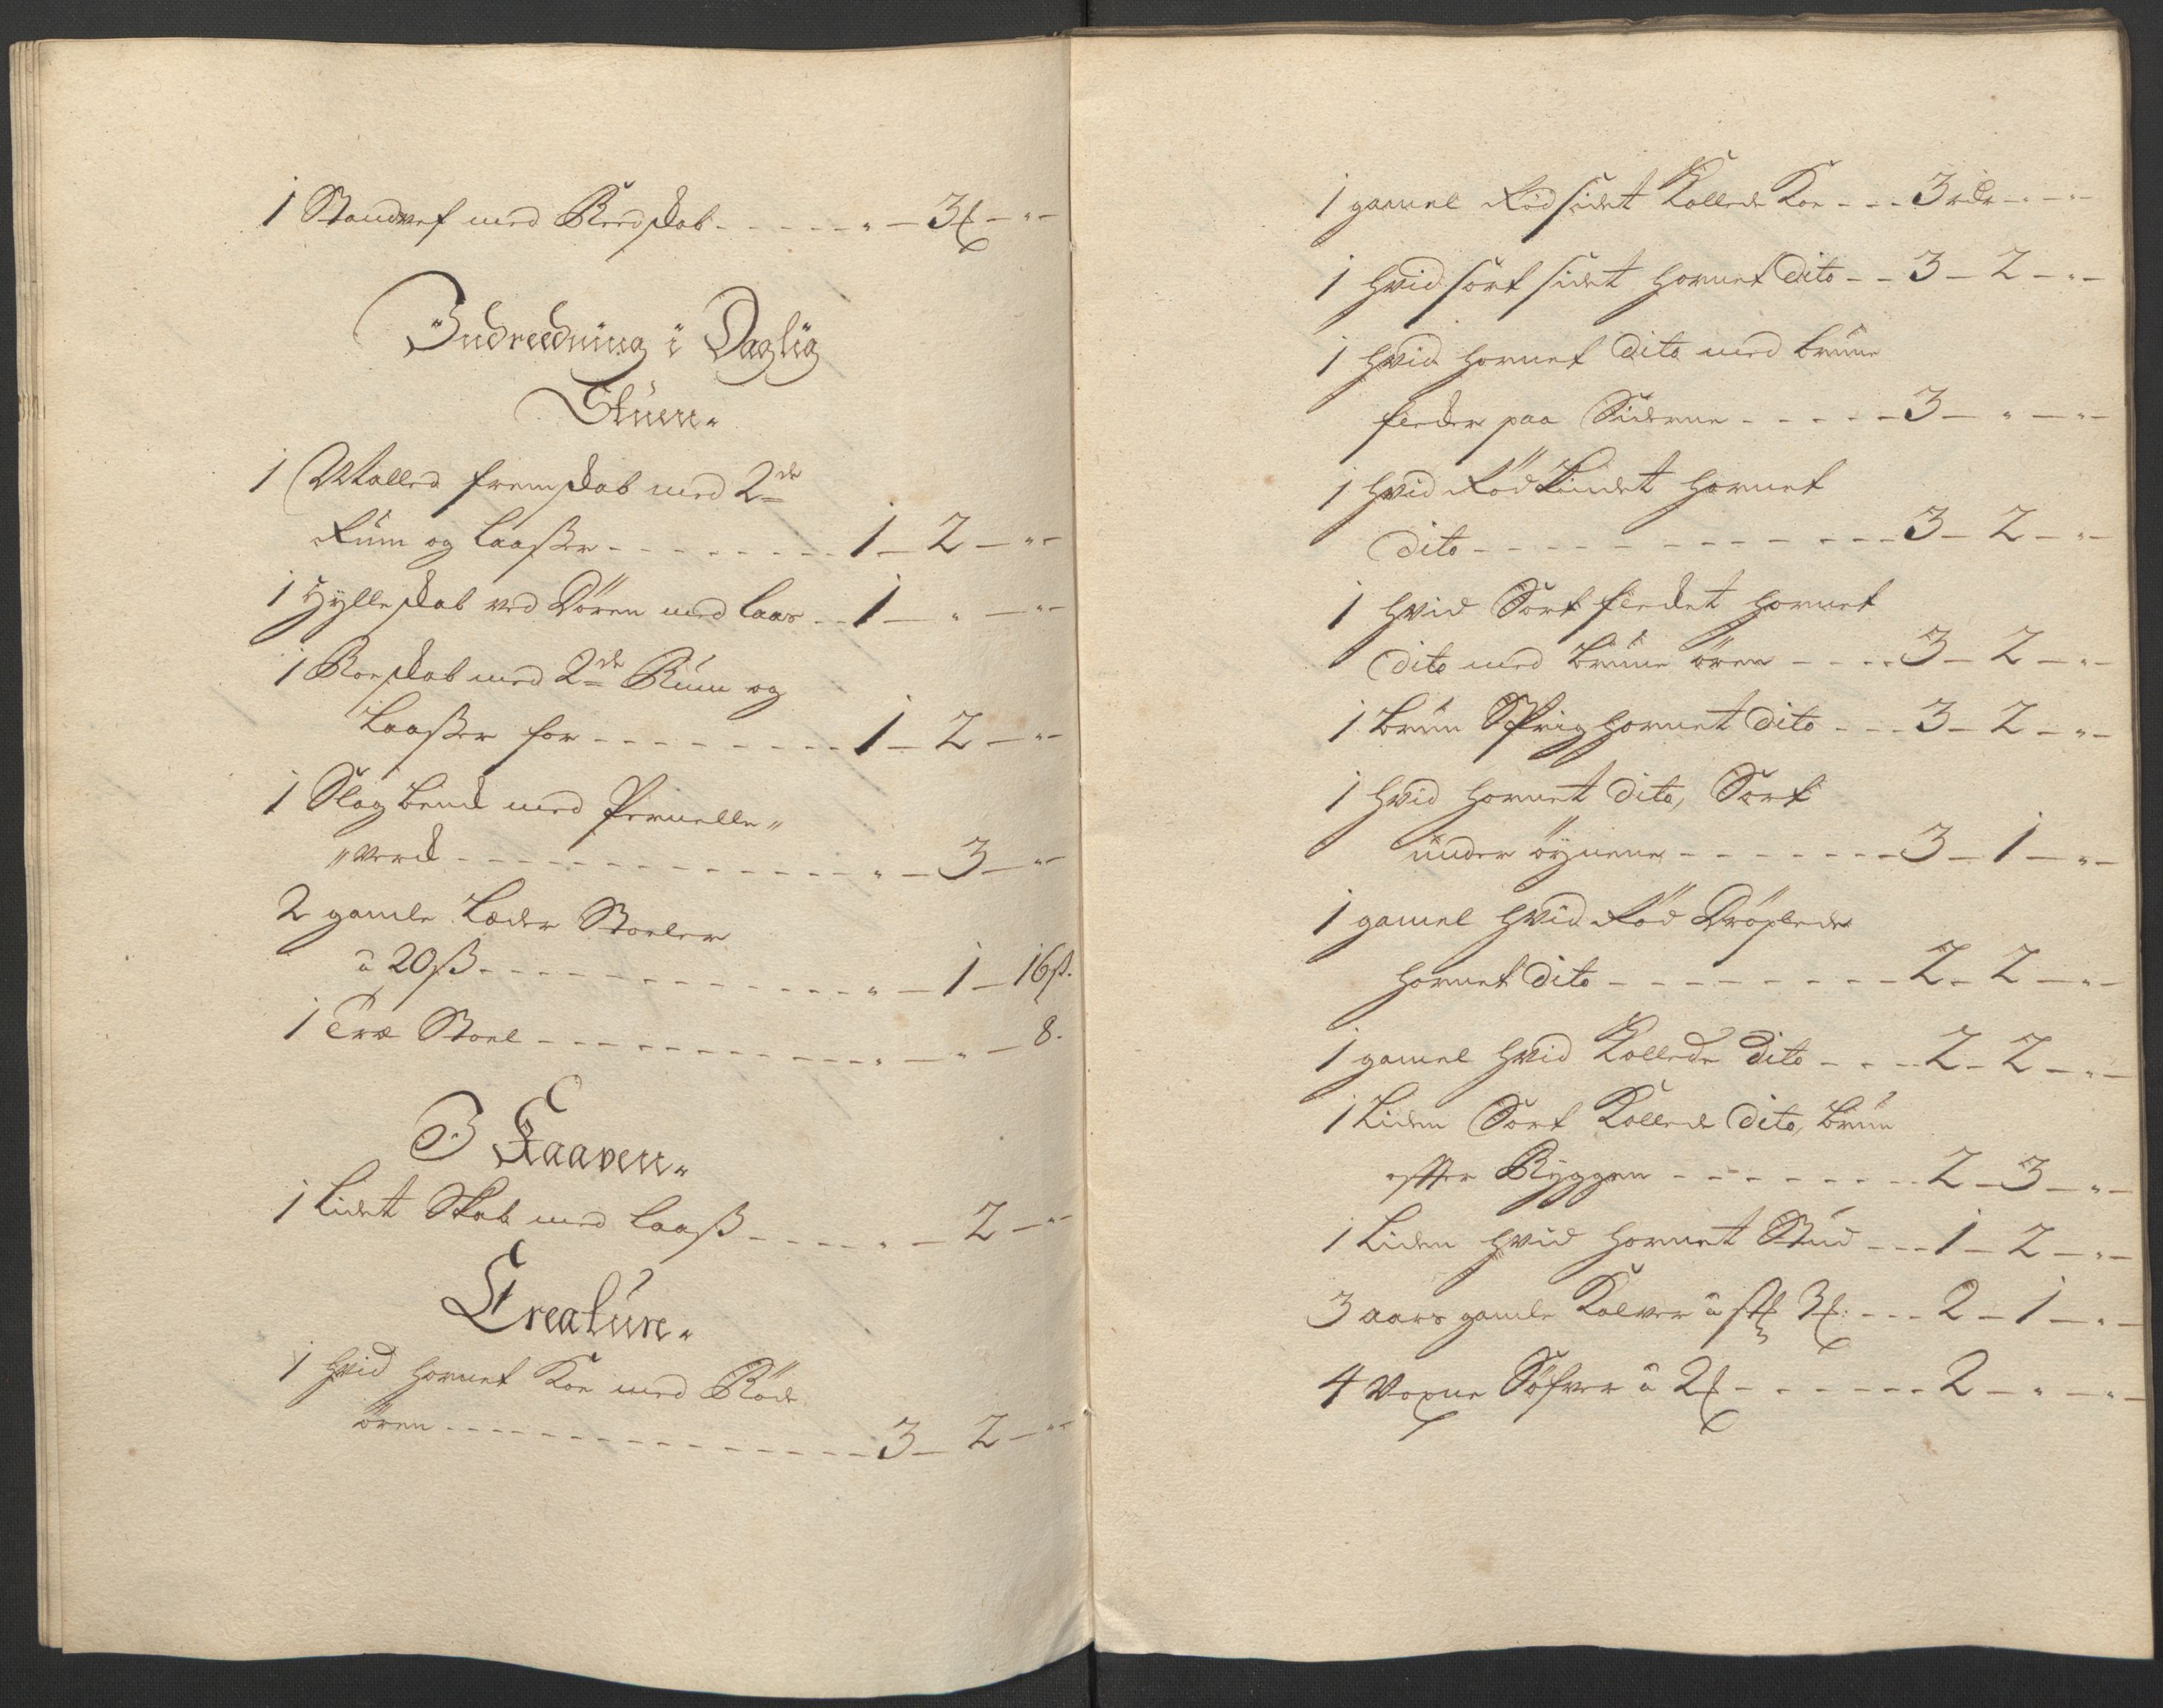 1 Standvef med Reedskab - - - - - „ — 3 ꝑ — „ —
Indreedning i Daglig
Stuen„
1 Malled fremskab med 2de
Rum og Laaßer - - - - - - - - 1 — 2 — „ —
1 Hylleskab ved Dören med Laas - - 1 — „ — „ —
1 Roeskab med 2de Rum og
Laaßer for - - - - - - - - - 1 — 2 — „ —
1 Slagbenck med Pernelle„
„verck - - - - - - - - - - - - „ — 3 — „ —
2 gamle Læder Stoeler
à 20 ß - - - - - - - - - - - „ — 1 — 16 ß.
1 Træ Stoel - - - - - - - - - - - - „ — „ — 8.
I Kaaven„
1 Lidet Skab med Laaß - - - - „ — 2 — „ —
Creature„
1 hvid hornet Koe med Röde
ören - - - - - - - - - - - - - - - 3 — 2 — „ —
1 gamel Rödsidet Kollede Koe - - - 3 rdr — „ — „ —
1 hvid sort sidet hornet dito - - 3 — 2 — „ —
1 hvid hornet dito med brune
flecker paa Siderne - - - - - 3 — „ — „ —
1 hvid Röd Kindet hornet
dito - - - - - - - - - - - - - 3 — 2 — „ —
1 hvid Sort flecket hornet
dito med brune ören - - - - 3 — 2 — „ —
1 brun Sprighornet dito - - - 3 — 2 — „ —
1 hvid hornet dito, Sort
under öynene - - - - - - - 3 — 1 — „ —
1 gamel hvid Röd Dröplede
hornet dito - - - - - - - - 2 — 2 — „ —
1 gamel hvid Kollede dito - - - 2 — 2 — „ —
1 Liden Sort Kollede dito, brun
efter Ryggen - - - - - - - - 2 — 3 — „ —
1 Liden hvid hornet Stud - - - 1 — 2 — „ —
3 aars gamle Kalver à st 3 ꝑ: - - - 2 — 1 — „ —
4 Voxne Söfver à 2 ꝑ - - - - - - 2 — „ — „ —